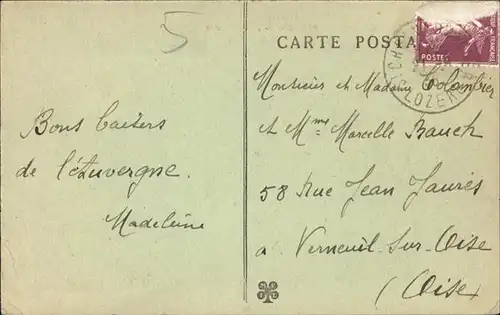 5
CARTE POSTA
POSTES
LOZERE
Bons baisers
de l'Auvergne.
Madeleine
Monsieur et Madame Colombier
et Mme Marcelle Bauch
58 Rue Jean Jaurès
a Verneuil-Sur-Oise
(Oise)